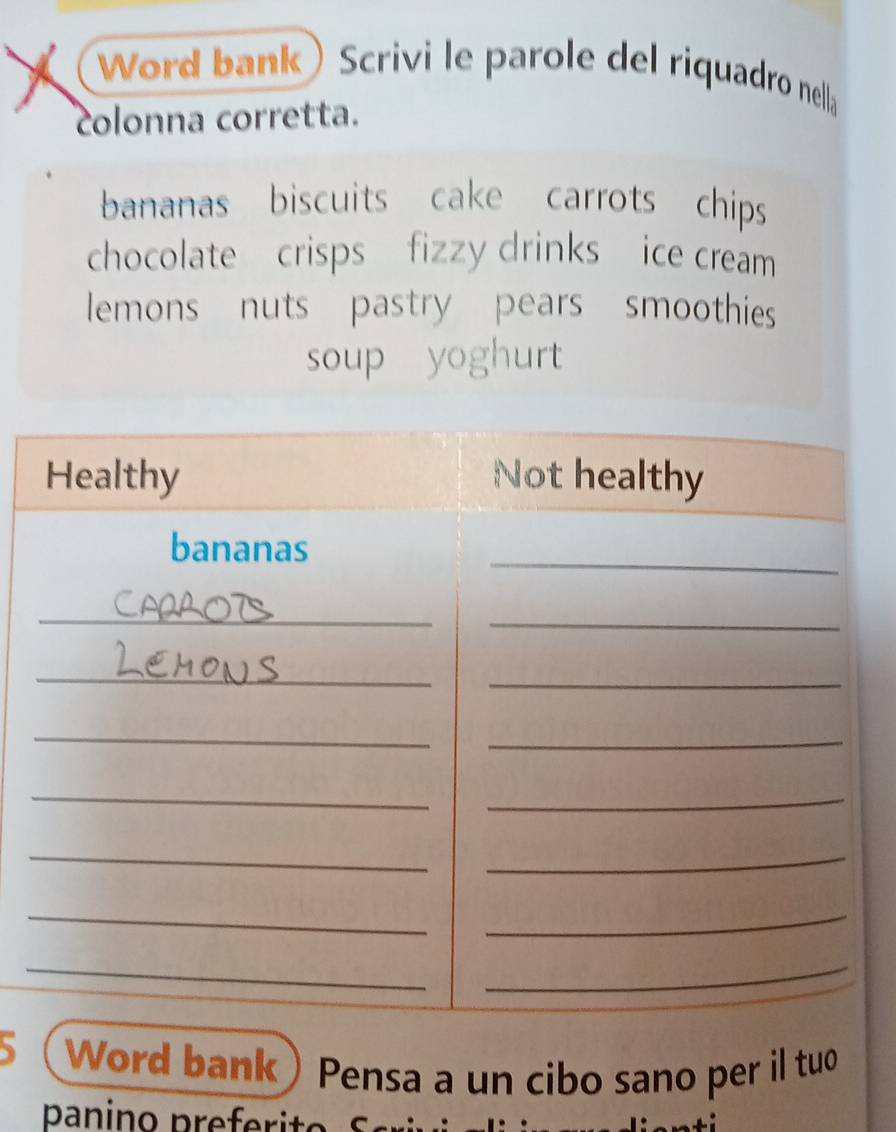 Word bank Scrivi le parole del riquadro nella
colonna corretta.
bananas biscuits cake carrots chips
chocolate crisps fizzy drinks ice cream
lemons nuts pastry pears smoothies
soup yoghurt
Healthy Not healthy
bananas
CARROTS
LEMONS
5 Word bank Pensa a un cibo sano per il tuo
panino preferito